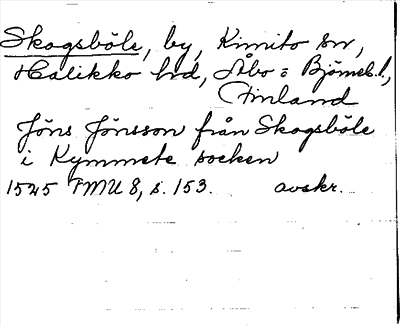 Skogsböle, by, Kimito sn,
Halikko hd, Åbo = Björneb. l.,
Finland
Jöns Jönsson från Skogsböle
i Kymmete socken
1545 FMU 8, s. 153. avskr.